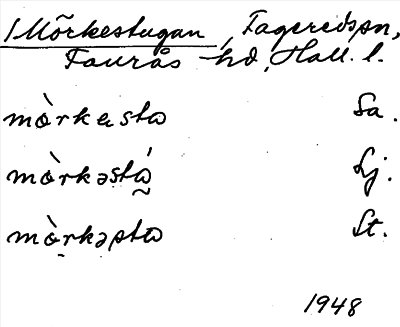 1 Mörkestugan, Fageredspn,
Faurås hd, Hall. l.
mòrkəsta Sa.
mòrkəstá Lj.
mòrkəsta St.
1948